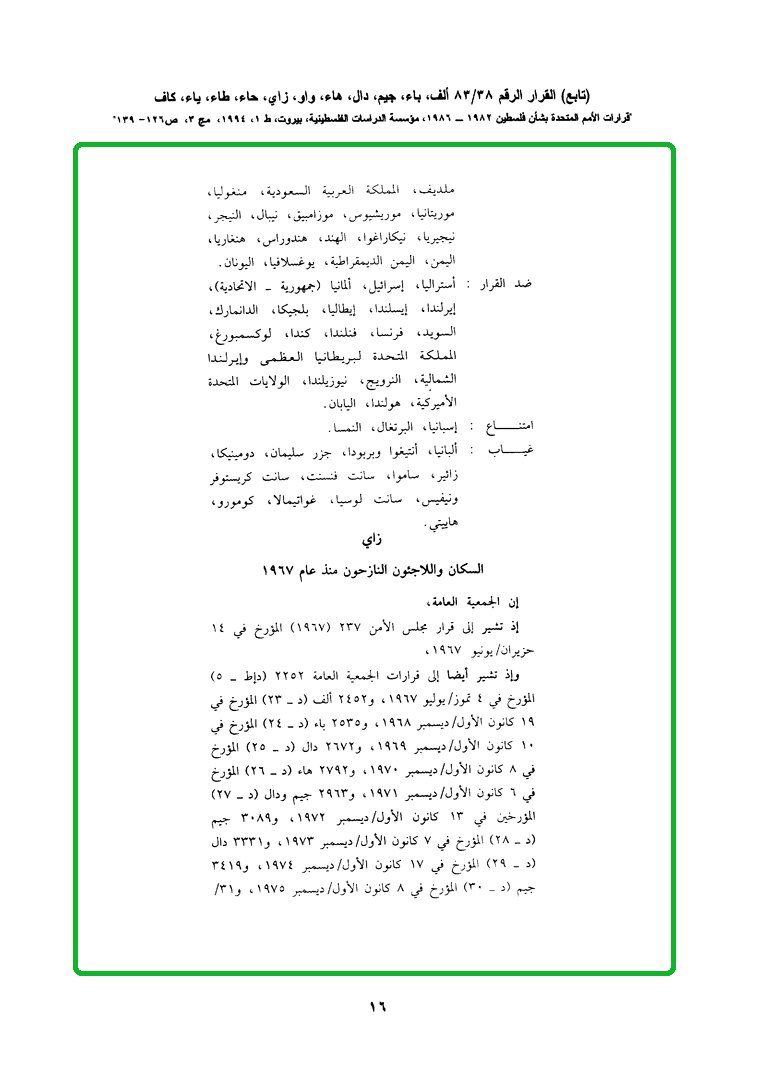 (تابع) القرار الرقم ٨٣/٣٨ ألف، باء، جيم، دال، هاء، واو، زاي، حاء، طاء، ياء، كاف
"قرارات الأمم المتحدة بشأن فلسطين ١٩٨٢ – ١٩٨٦، مؤسسة الدراسات الفلسطينية، بيروت، ط ١، ١٩٩٤، مج ٣، ص١٢٦- ١٣٩"
ملديف، المملكة العربية السعودية، منغوليا،
موريتانيا، موريشيوس، موزامبيق، نيبال، النيجر،
نيجيريا، نيكاراغوا، الهند، هندوراس، هنغاريا،
اليمن، اليمن الديمقراطية، يوغسلافيا، اليونان.
ضد القرار : أستراليا، إسرائيل، ألمانيا (جمهورية ـ الاتحادية)،
إيرلندا، إيسلندا، إيطاليا، بلجيكا، الدانمارك،
السويد، فرنسا، فنلندا، كندا، لوكسمبورغ،
المملكة المتحدة لبريطانيا العظمى وإيرلندا
الشمالية، النرويج، نيوزيلندا، الولايات المتحدة
الأميركية، هولندا، اليابان.
امتنـــــاع : إسبانيا، البرتغال، النمسا.
غيـــــاب : ألبانيا، أنتيغوا وبربودا، جزر سليمان، دومينيكا،
زائير، ساموا، سانت فنسنت، سانت كريستوفر
ونيفيس، سانت لوسيا، غواتيمالا، كومورو،
هاييتي.
زاي
السكان واللاجئون النازحون منذ عام ١٩٦٧
إن الجمعية العامة،
إذ تشير إلى قرار مجلس الأمن ٢٣٧ (١٩٦٧) المؤرخ في ١٤
حزيران/يونيو ١٩٦٧،
وإذ تشير أيضا إلى قرارات الجمعية العامة ٢٢٥٢ (دإط ـ ٥)
المؤرخ في ٤ تموز/يوليو ١٩٦٧، و٢٤٥٢ ألف (د ـ ٢٣) المؤرخ في
١٩ كانون الأول/ديسمبر ١٩٦٨، و٢٥٣٥ باء (د ـ ٢٤) المؤرخ في
١٠ كانون الأول/ديسمبر ١٩٦٩، و٢٦٧٢ دال (د ـ ٢٥) المؤرخ
في ٨ كانون الأول/ديسمبر ١٩٧٠، و٢٧٩٢ هاء (د ـ ٢٦) المؤرخ
في ٦ كانون الأول/ديسمبر ١٩٧١، و٢٩٦٣ جيم ودال (د ـ ٢٧)
المؤرخين في ١٣ كانون الأول/ديسمبر ١٩٧٢، و٣٠٨٩ جيم
(د ـ ٢٨) المؤرخ في ٧ كانون الأول/ديسمبر ١٩٧٣، و٣٣٣١ دال
(د ـ ٢٩) المؤرخ في ١٧ كانون الأول/ديسمبر ١٩٧٤، و٣٤١٩
جيم (د ـ ٣٠) المؤرخ في ٨ كانون الأول/ديسمبر ١٩٧٥، و٣١/
١٦